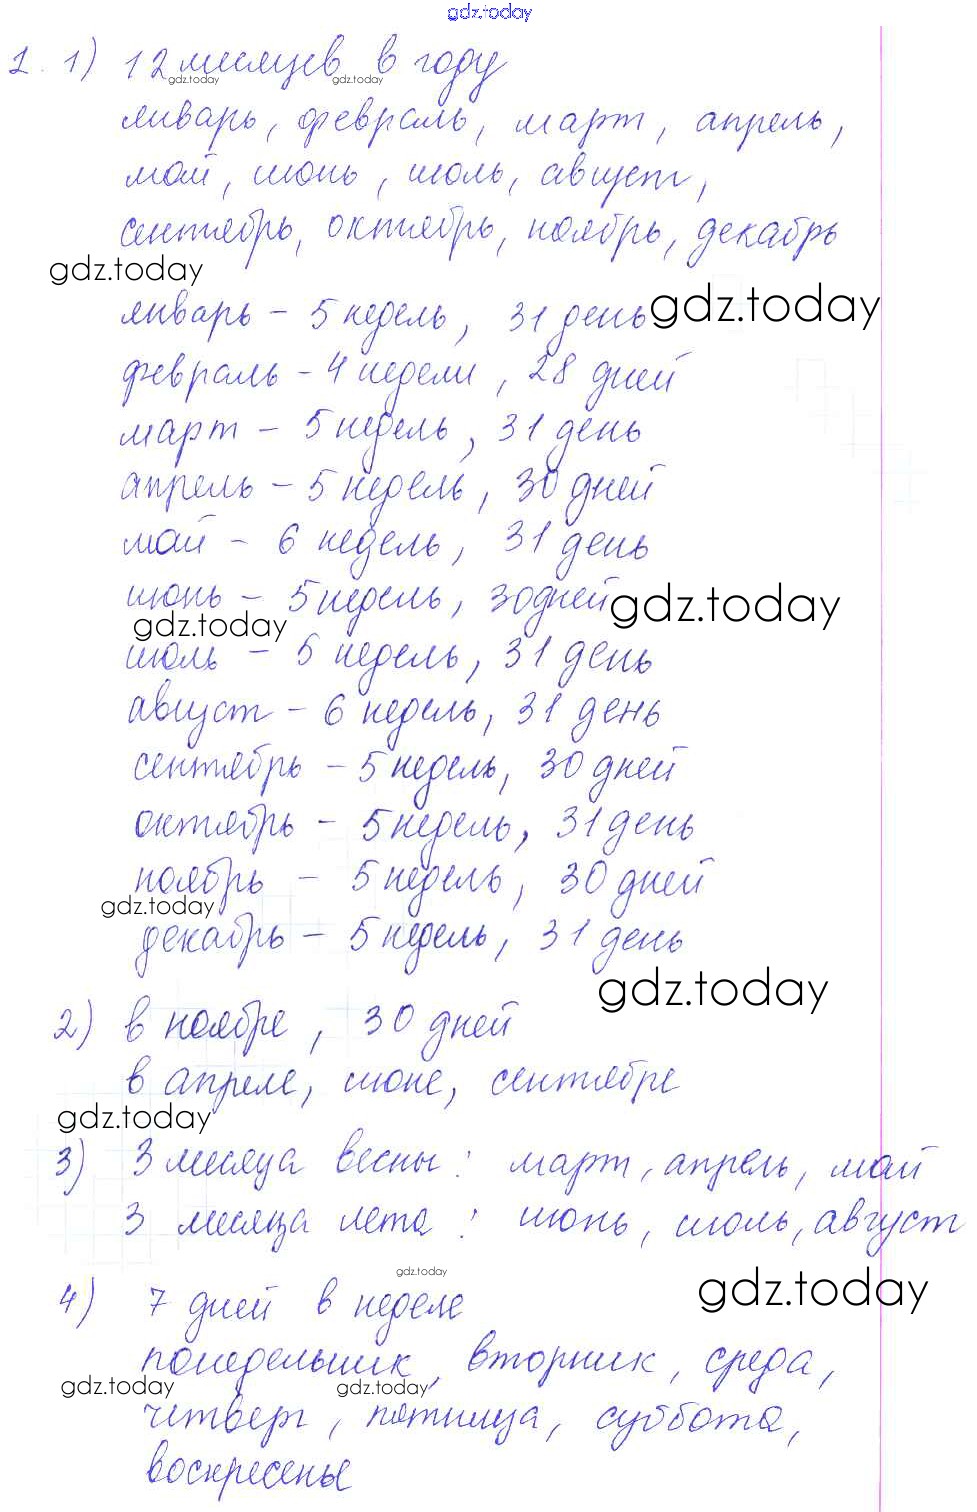 gdz.today
1. 1) 12 месяцев в году
gdz.today gdz.today
январь, февраль, март, апрель,
май, июнь, июль, август,
сентябрь, октябрь, ноябрь, декабрь
gdz.today
январь – 5 недель, 31 день gdz.today
февраль – 4 недели, 28 дней
март – 5 недель, 31 день
апрель – 5 недель, 30 дней
май – 6 недель, 31 день
июнь – 5 недель, 30 дней gdz.today
gdz.today
июль – 5 недель, 31 день
август – 6 недель, 31 день
сентябрь – 5 недель, 30 дней
октябрь – 5 недель, 31 день
ноябрь – 5 недель, 30 дней
gdz.today
декабрь – 5 недель, 31 день
gdz.today
2) в ноябре, 30 дней
в апреле, июне, сентябре
gdz.today
3) 3 месяца весны: март, апрель, май
3 месяца лета: июнь, июль, август
gdz.today
gdz.today
4) 7 дней в неделе
понедельник, вторник, среда,
gdz.today gdz.today
четверг, пятница, суббота,
воскресенье